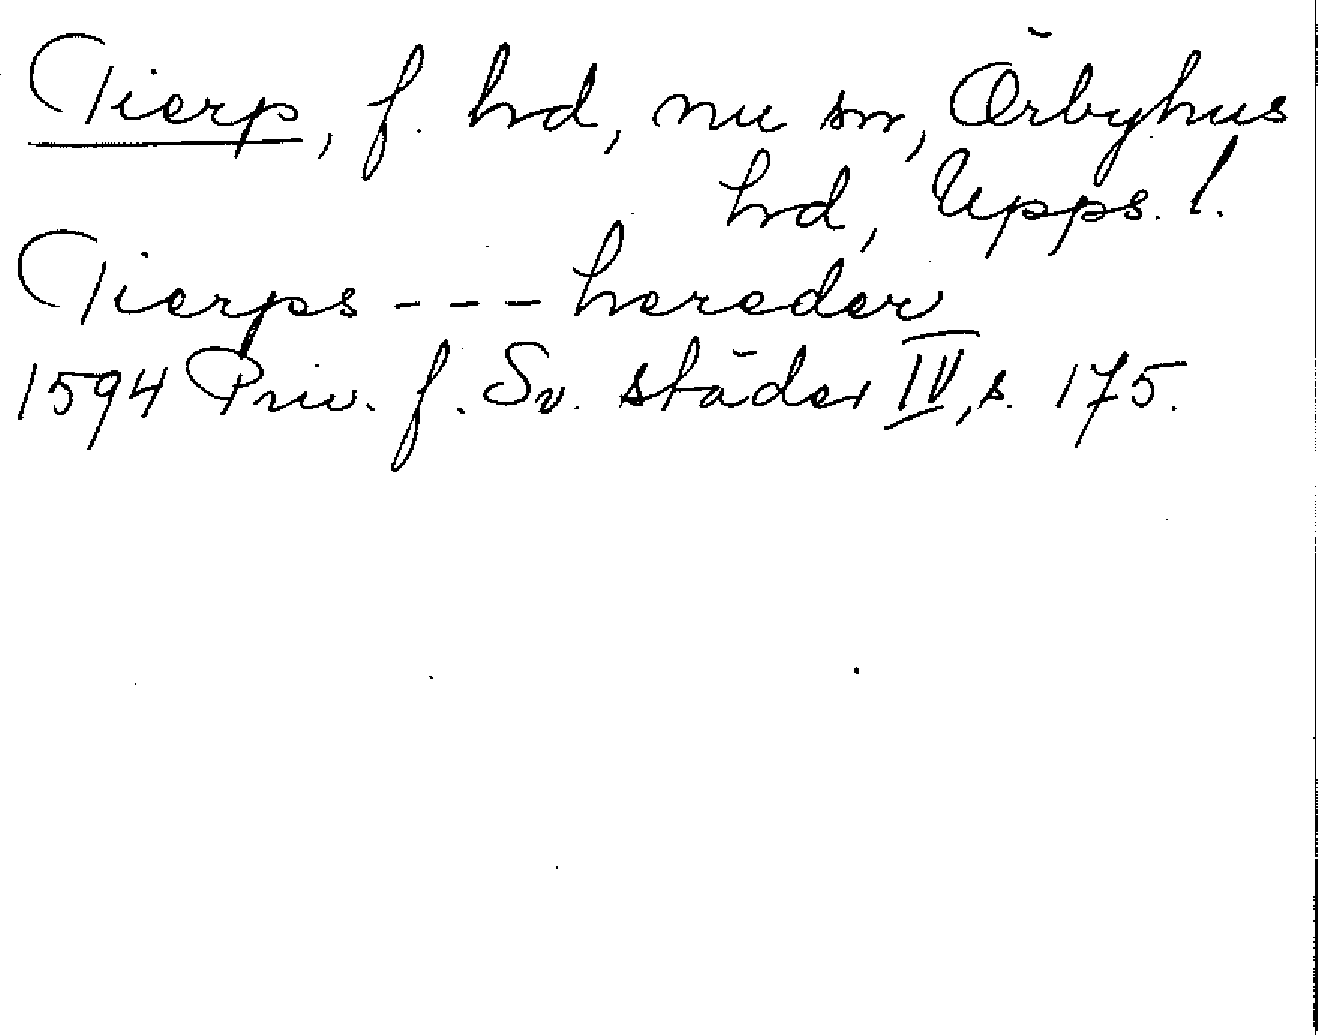 Tierp, f. hd, nu sn, Örbyhus
hd, Upps. l.
Tierps - - - hereder
1594 Priv. f. Sv. städer IV, s. 175.